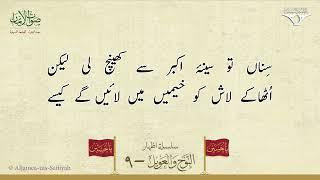 سِناں تو سینۂ اکبر سے کھینچ لی لیکن
اُٹھا کے لاش کو خیمیں میں لائیں گے کیسے
سلسلۃ اظہار
النَّوح والعَوِيل - ۹
© Aljamea-tus-Saifiyah